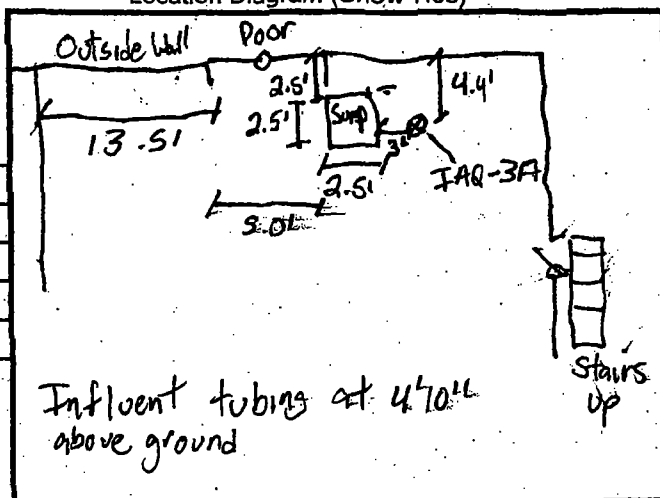 Location Diagram (Show Ties)
Outside Wall
Door
2.5'
4.4'
2.5'
Sump
13.5'
3'
IAQ-3A
2.5'
Stairs
up
Influent tubing at 4'10"
above ground